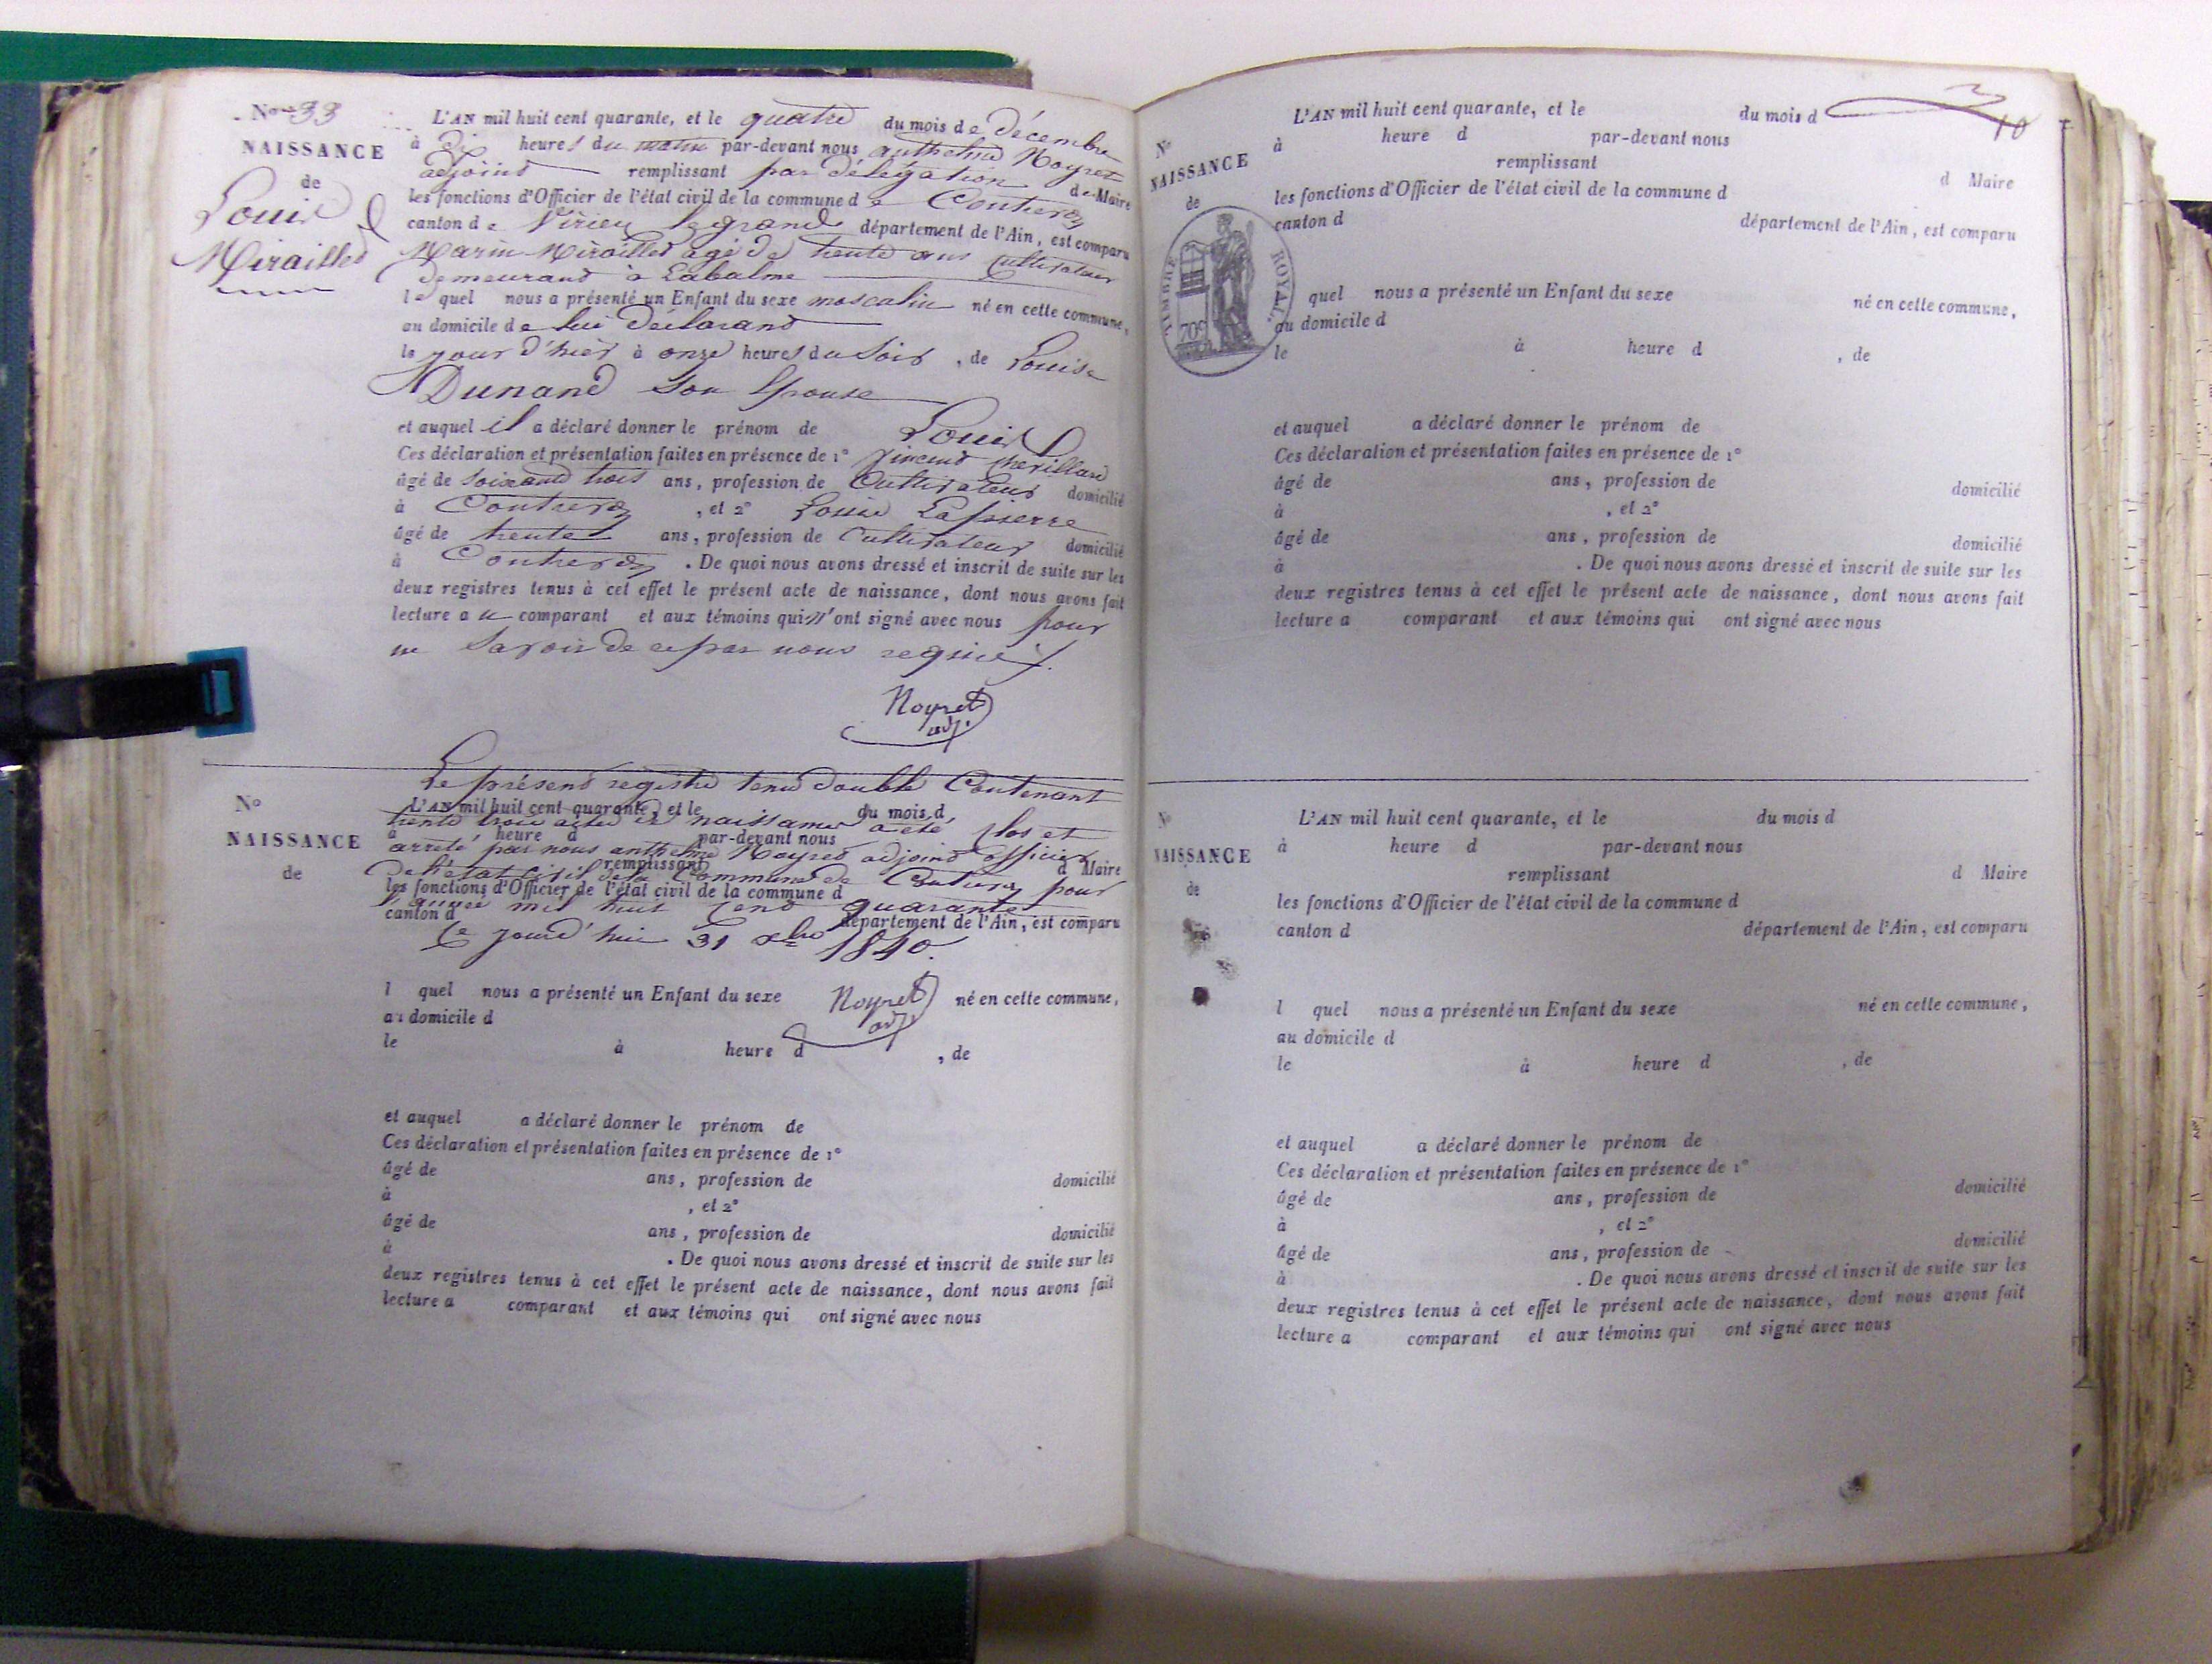 No 33
NAISSANCE
de
Louis
Mirailles
L'AN mil huit cent quarante, et le quatre du mois de décembre
à dix heures du matin par-devant nous anthelme Noyret
adjoint remplissant par délégation de Maire
les fonctions d'Officier de l'état civil de la commune de Contrevoz
canton de Virieu legrand département de l'Ain, est comparu
Marin Mirailles agé de trente ans Cultivateur
demeurant à Labalme
lequel nous a présenté un Enfant du sexe masculin né en cette commune,
au domicile de lui déclarant
le jour d'hièr à onze heures du soir, de Louise
Dunand son Epouse
et auquel il a déclaré donner le prénom de Louis
Ces déclaration et présentation faites en présence de 1° Vincent Chevillard
âgé de soixante trois ans, profession de Cultivateur domicilié
à Contrevoz, et 2° Louis Lapierre
âgé de trente ans, profession de Cultivateur domicilié
à Contrevoz. De quoi nous avons dressé et inscrit de suite sur les
deux registres tenus à cet effet le présent acte de naissance, dont nous avons fait
lecture au comparant et aux témoins qui n'ont signé avec nous pour
ne savoir de ce par nous requis
Noyret
adj.
Le présent registre tenu double Contenant
No
NAISSANCE
de
L'AN mil huit cent quarante, et le du mois d
trente trois actes de naissance a été clos et
à heure d par-devant nous
arrêté par nous anthelme Noyret adjoint officier
remplissant d Maire
de l'état civil de la Commune de Contrevoz pour
les fonctions d'Officier de l'état civil de la commune d
l'année mil huit cent quarante
canton d département de l'Ain, est comparu
Ce jourd'hui 31 xbre 1840.
l quel nous a présenté un Enfant du sexe né en cette commune,
Noyret
adj.
au domicile d
le à heure d , de
et auquel a déclaré donner le prénom de
Ces déclaration et présentation faites en présence de 1°
âgé de ans, profession de domicilié
à , et 2°
âgé de ans, profession de domicilié
à . De quoi nous avons dressé et inscrit de suite sur les
deux registres tenus à cet effet le présent acte de naissance, dont nous avons fait
lecture a comparant et aux témoins qui ont signé avec nous
10
No
NAISSANCE
de
L'AN mil huit cent quarante, et le du mois d
à heure d par-devant nous
remplissant d Maire
les fonctions d'Officier de l'état civil de la commune d
canton d département de l'Ain, est comparu
TIMBRE ROYAL.
70c
quel nous a présenté un Enfant du sexe né en cette commune,
au domicile d
le à heure d , de
et auquel a déclaré donner le prénom de
Ces déclaration et présentation faites en présence de 1°
âgé de ans, profession de domicilié
à , et 2°
âgé de ans, profession de domicilié
à . De quoi nous avons dressé et inscrit de suite sur les
deux registres tenus à cet effet le présent acte de naissance, dont nous avons fait
lecture a comparant et aux témoins qui ont signé avec nous
No
NAISSANCE
de
L'AN mil huit cent quarante, et le du mois d
à heure d par-devant nous
remplissant d Maire
les fonctions d'Officier de l'état civil de la commune d
canton d département de l'Ain, est comparu
l quel nous a présenté un Enfant du sexe né en cette commune,
au domicile d
le à heure d , de
et auquel a déclaré donner le prénom de
Ces déclaration et présentation faites en présence de 1°
âgé de ans, profession de domicilié
à , et 2°
âgé de ans, profession de domicilié
à . De quoi nous avons dressé et inscrit de suite sur les
deux registres tenus à cet effet le présent acte de naissance, dont nous avons fait
lecture a comparant et aux témoins qui ont signé avec nous